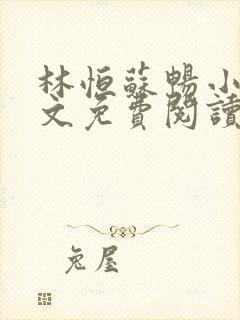 林恒蘇暢小
文免費閱讀
兔屋